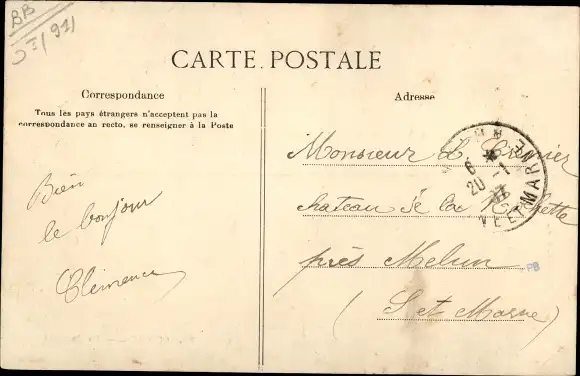 BB
CARTE POSTALE
Correspondance
Tous les pays étrangers n'acceptent pas la
correspondance au recto, se renseigner à la Poste
Bien
le bonjour
Clémence
Adresse
Monsieur L
chateau de la
près Melun
(S et Marne)
ET MARNE
PB